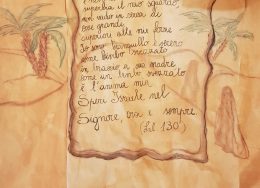 superbia il mio sguardo,
non vado in cerca di
cose grandi
superiori alle mie forze
Io sono tranquillo e sereno
come bimbo svezzato
in braccio a sua madre
come un bimbo svezzato
è l'anima mia
Speri Israele nel
Signore, ora e sempre.
(Sal 130)